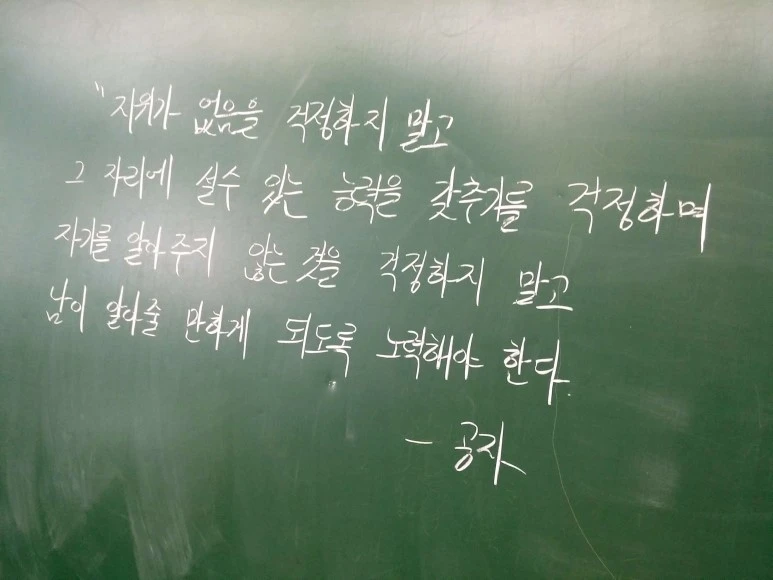 "지위가 없음을 걱정하지 말고
그 자리에 설수 있는 능력을 갖추기를 걱정하며
자기를 알아주지 않는 것을 걱정하지 말고
남이 알아줄 만하게 되도록 노력해야 한다.
- 공자